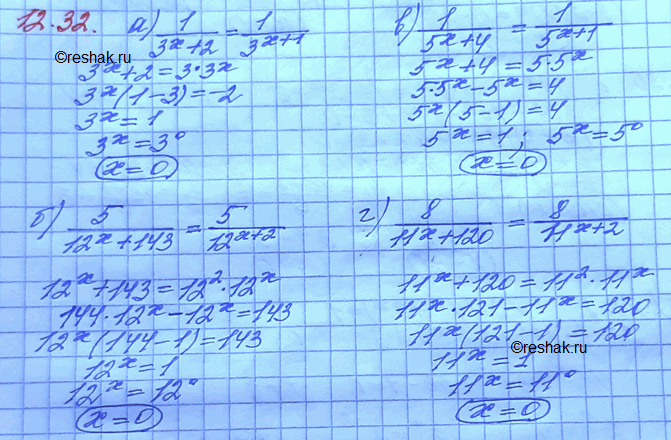 12.32. а) 1/(3^x+2) = 1/3^(x+1)
©reshak.ru
3^x+2=3·3^x
3^x(1-3)=-2
3^x=1
3^x=3^0
x=0
в) 1/(5^x+4) = 1/5^(x+1)
5^x+4=5·5^x
5·5^x-5^x=4
5^x(5-1)=4
5^x=1; 5^x=5^0
x=0
б) 5/(12^x+143) = 5/12^(x+2)
12^x+143=12^2·12^x
144·12^x-12^x=143
12^x(144-1)=143
12^x=1
12^x=12^0
x=0
г) 8/(11^x+120) = 8/11^(x+2)
11^x+120=11^2·11^x
11^x·121-11^x=120
11^x(121-1)=120
11^x=1
©reshak.ru
11^x=11^0
x=0